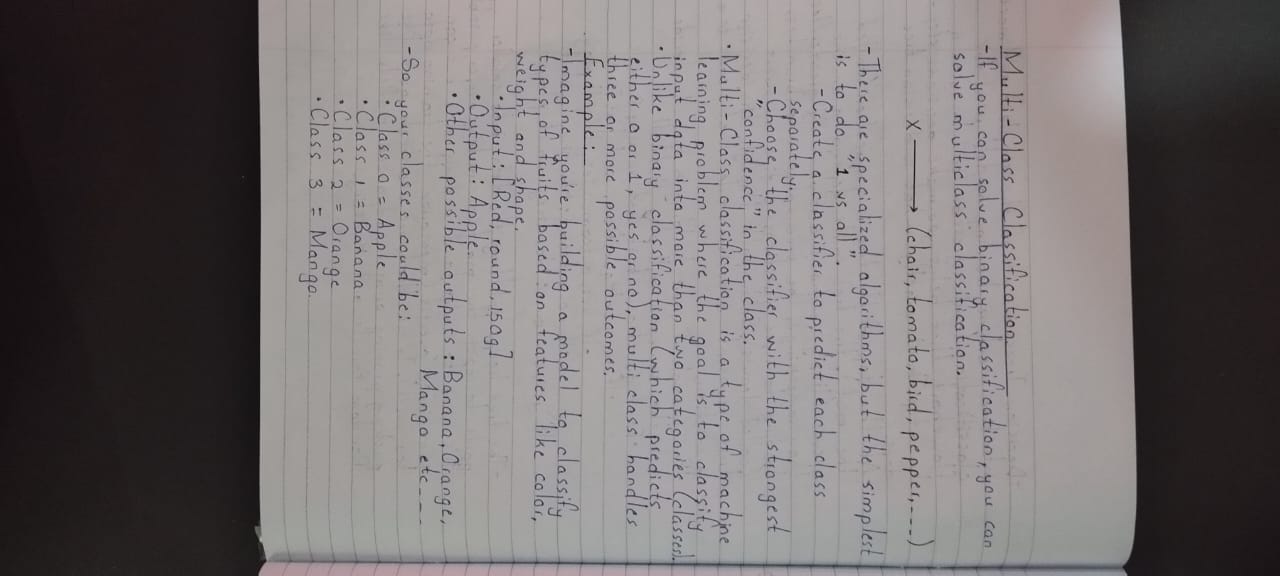 Multi-Class Classification
- If you can solve binary classification, you can
solve multiclass classification.
x ⟶ (chair, tomato, bird, pepper, ---)
- There are specialized algorithms, but the simplest
is to do "1 vs all"
- Create a classifier to predict each class
separately.
- Choose the classifier with the strongest
"confidence" in the class.
• Multi-Class classification is a type of machine
learning problem where the goal is to classify
input data into more than two categories (classes).
• Unlike binary classification (which predicts
either 0 or 1, yes or no), multi class handles
three or more possible outcomes.
Example:
- Imagine you're building a model to classify
types of fruits based on features like color,
weight and shape.
• Input: [Red, round, 150g]
• Output: Apple
• Other possible outputs: Banana, Orange,
Mango etc---
- So your classes could be:
• Class 0 = Apple
• Class 1 = Banana
• Class 2 = Orange
• Class 3 = Mango.